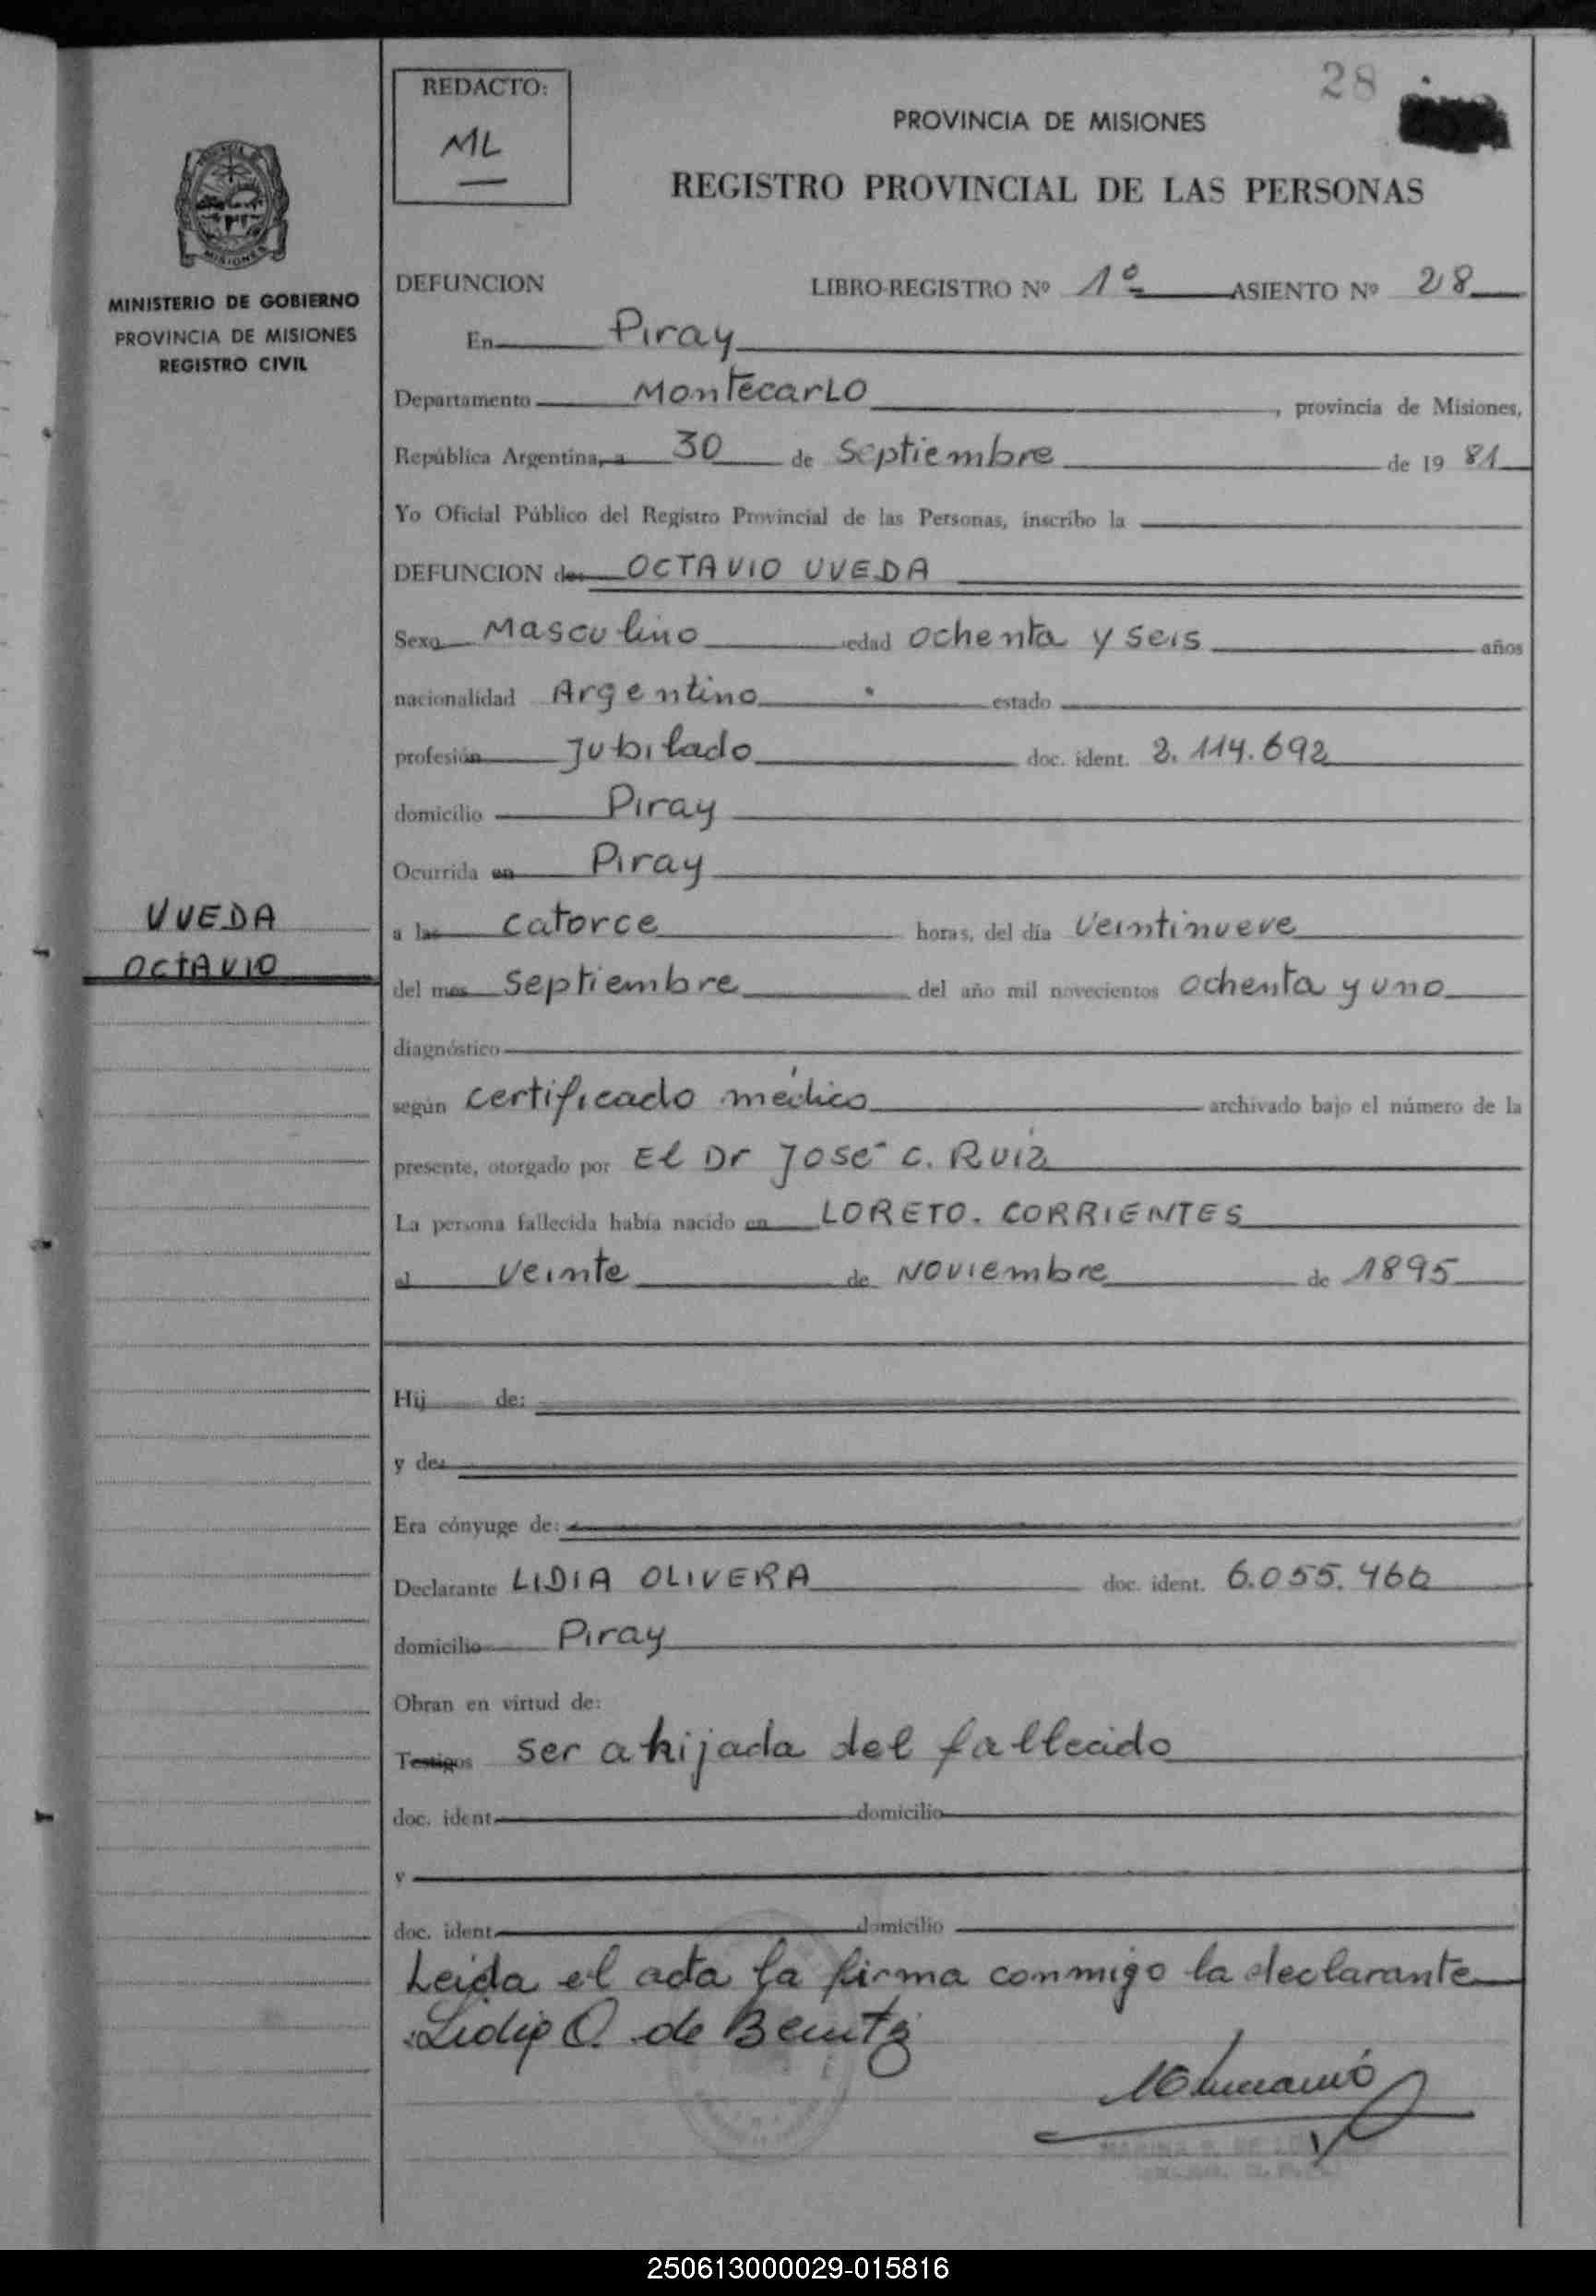 28
REDACTO:
ML
PROVINCIA DE MISIONES
REGISTRO PROVINCIAL DE LAS PERSONAS
MISIONES
MINISTERIO DE GOBIERNO
PROVINCIA DE MISIONES
REGISTRO CIVIL
DEFUNCION LIBRO-REGISTRO Nº 1º ASIENTO Nº 28
En Piray
Departamento Montecarlo, provincia de Misiones,
República Argentina, a 30 de Septiembre de 19 81
Yo Oficial Público del Registro Provincial de las Personas, inscribo la
DEFUNCION de OCTAVIO UVEDA
Sexo Masculino edad ochenta y seis años
nacionalidad Argentino estado
profesión Jubilado doc. ident. 2.114.692
domicilio Piray
Ocurrida en Piray
UVEDA
OCTAVIO
a las catorce horas, del día veintinueve
del mes Septiembre del año mil novecientos ochenta y uno
diagnóstico
según certificado médico archivado bajo el número de la
presente, otorgado por El Dr José C. Ruiz
La persona fallecida había nacido en LORETO. CORRIENTES
el veinte de Noviembre de 1895
Hij de:
y de:
Era cónyuge de:
Declarante LIDIA OLIVERA doc. ident. 6.055.466
domicilio Piray
Obran en virtud de:
Testigos ser ahijada del fallecido
doc. ident. domicilio
y
doc. ident. domicilio
Leida el acta la firma conmigo la declarante
Lidia O. de Benitz
250613000029-015816